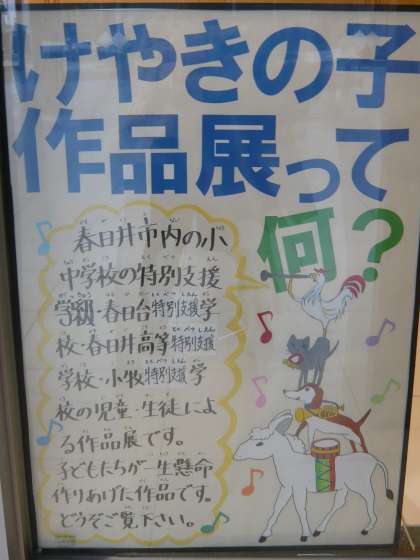 けやきの子
作品展って
何？
春日井市内の小
中学校の特別支援
学級・春日台特別支援学
校・春日井高等特別支援
学校・小牧特別支援学
校の児童・生徒によ
る作品展です。
子どもたちが一生懸命
作りあげた作品です。
どうぞご覧下さい。